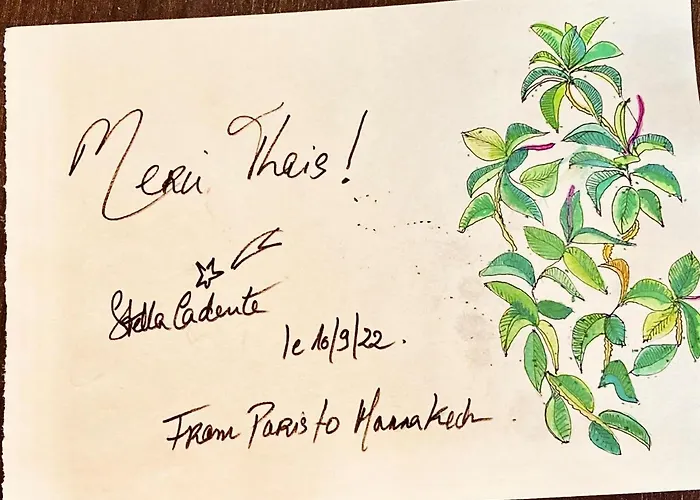 Merci Thais!
Stella Cadente
le 10/9/22.
From Paris to Marrakech.